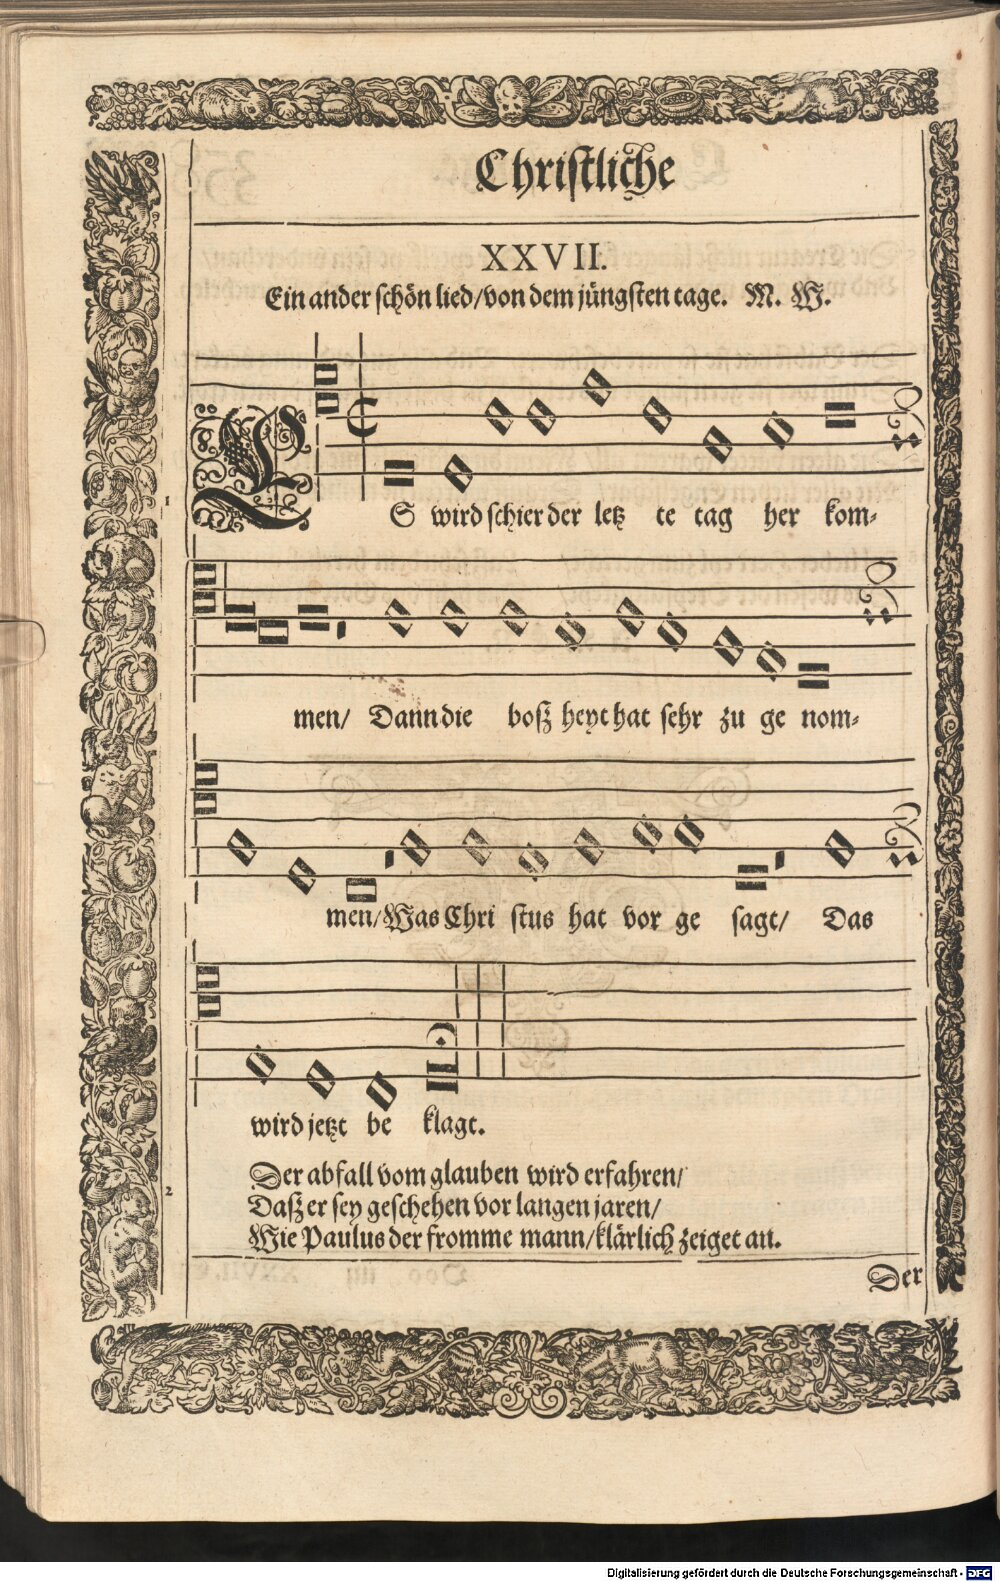 Christliche
XXVII.
Ein ander schön lied/von dem jüngsten tage. M. W.
1
ES wird schier der letz te tag her kom-
men/ Dann die boß heyt hat sehr zu ge nom-
men/Was Chri stus hat vor ge sagt/ Das
wird jetzt be klagt.
2
Der abfall vom glauben wird erfahren/
Daß er sey geschehen vor langen jaren/
Wie Paulus der fromme mann/klärlich zeiget an.
Der
Digitalisierung gefördert durch die Deutsche Forschungsgemeinschaft - DFG